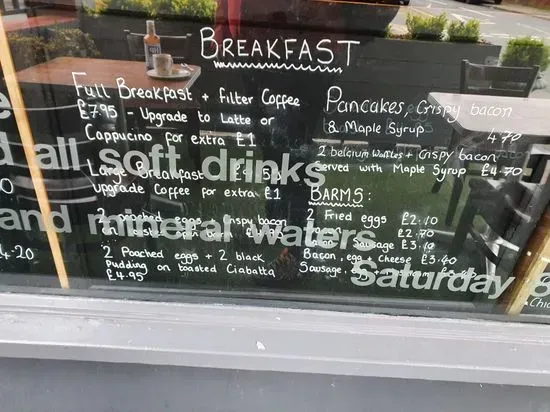 BREAKFAST
Full Breakfast + filter Coffee
£7.95 - Upgrade to Latte or
Cappucino for extra £1
Large Breakfast
Upgrade Coffee for extra £1
2 poached eggs + Crispy bacon
on
2 Poached eggs + 2 black
Pudding on toasted Ciabatta
£4.95
Pancakes, Crispy bacon
& Maple Syrup 4.70
2 belgium Waffles + Crispy bacon
Served with Maple Syrup £4.70
BARMS:
2 Fried eggs £2.10
£2.70
Sausage £3.10
Bacon, egg + Cheese £3.40
Sausage, £3.60
all soft drinks
and mineral waters
Saturday 8
4.20